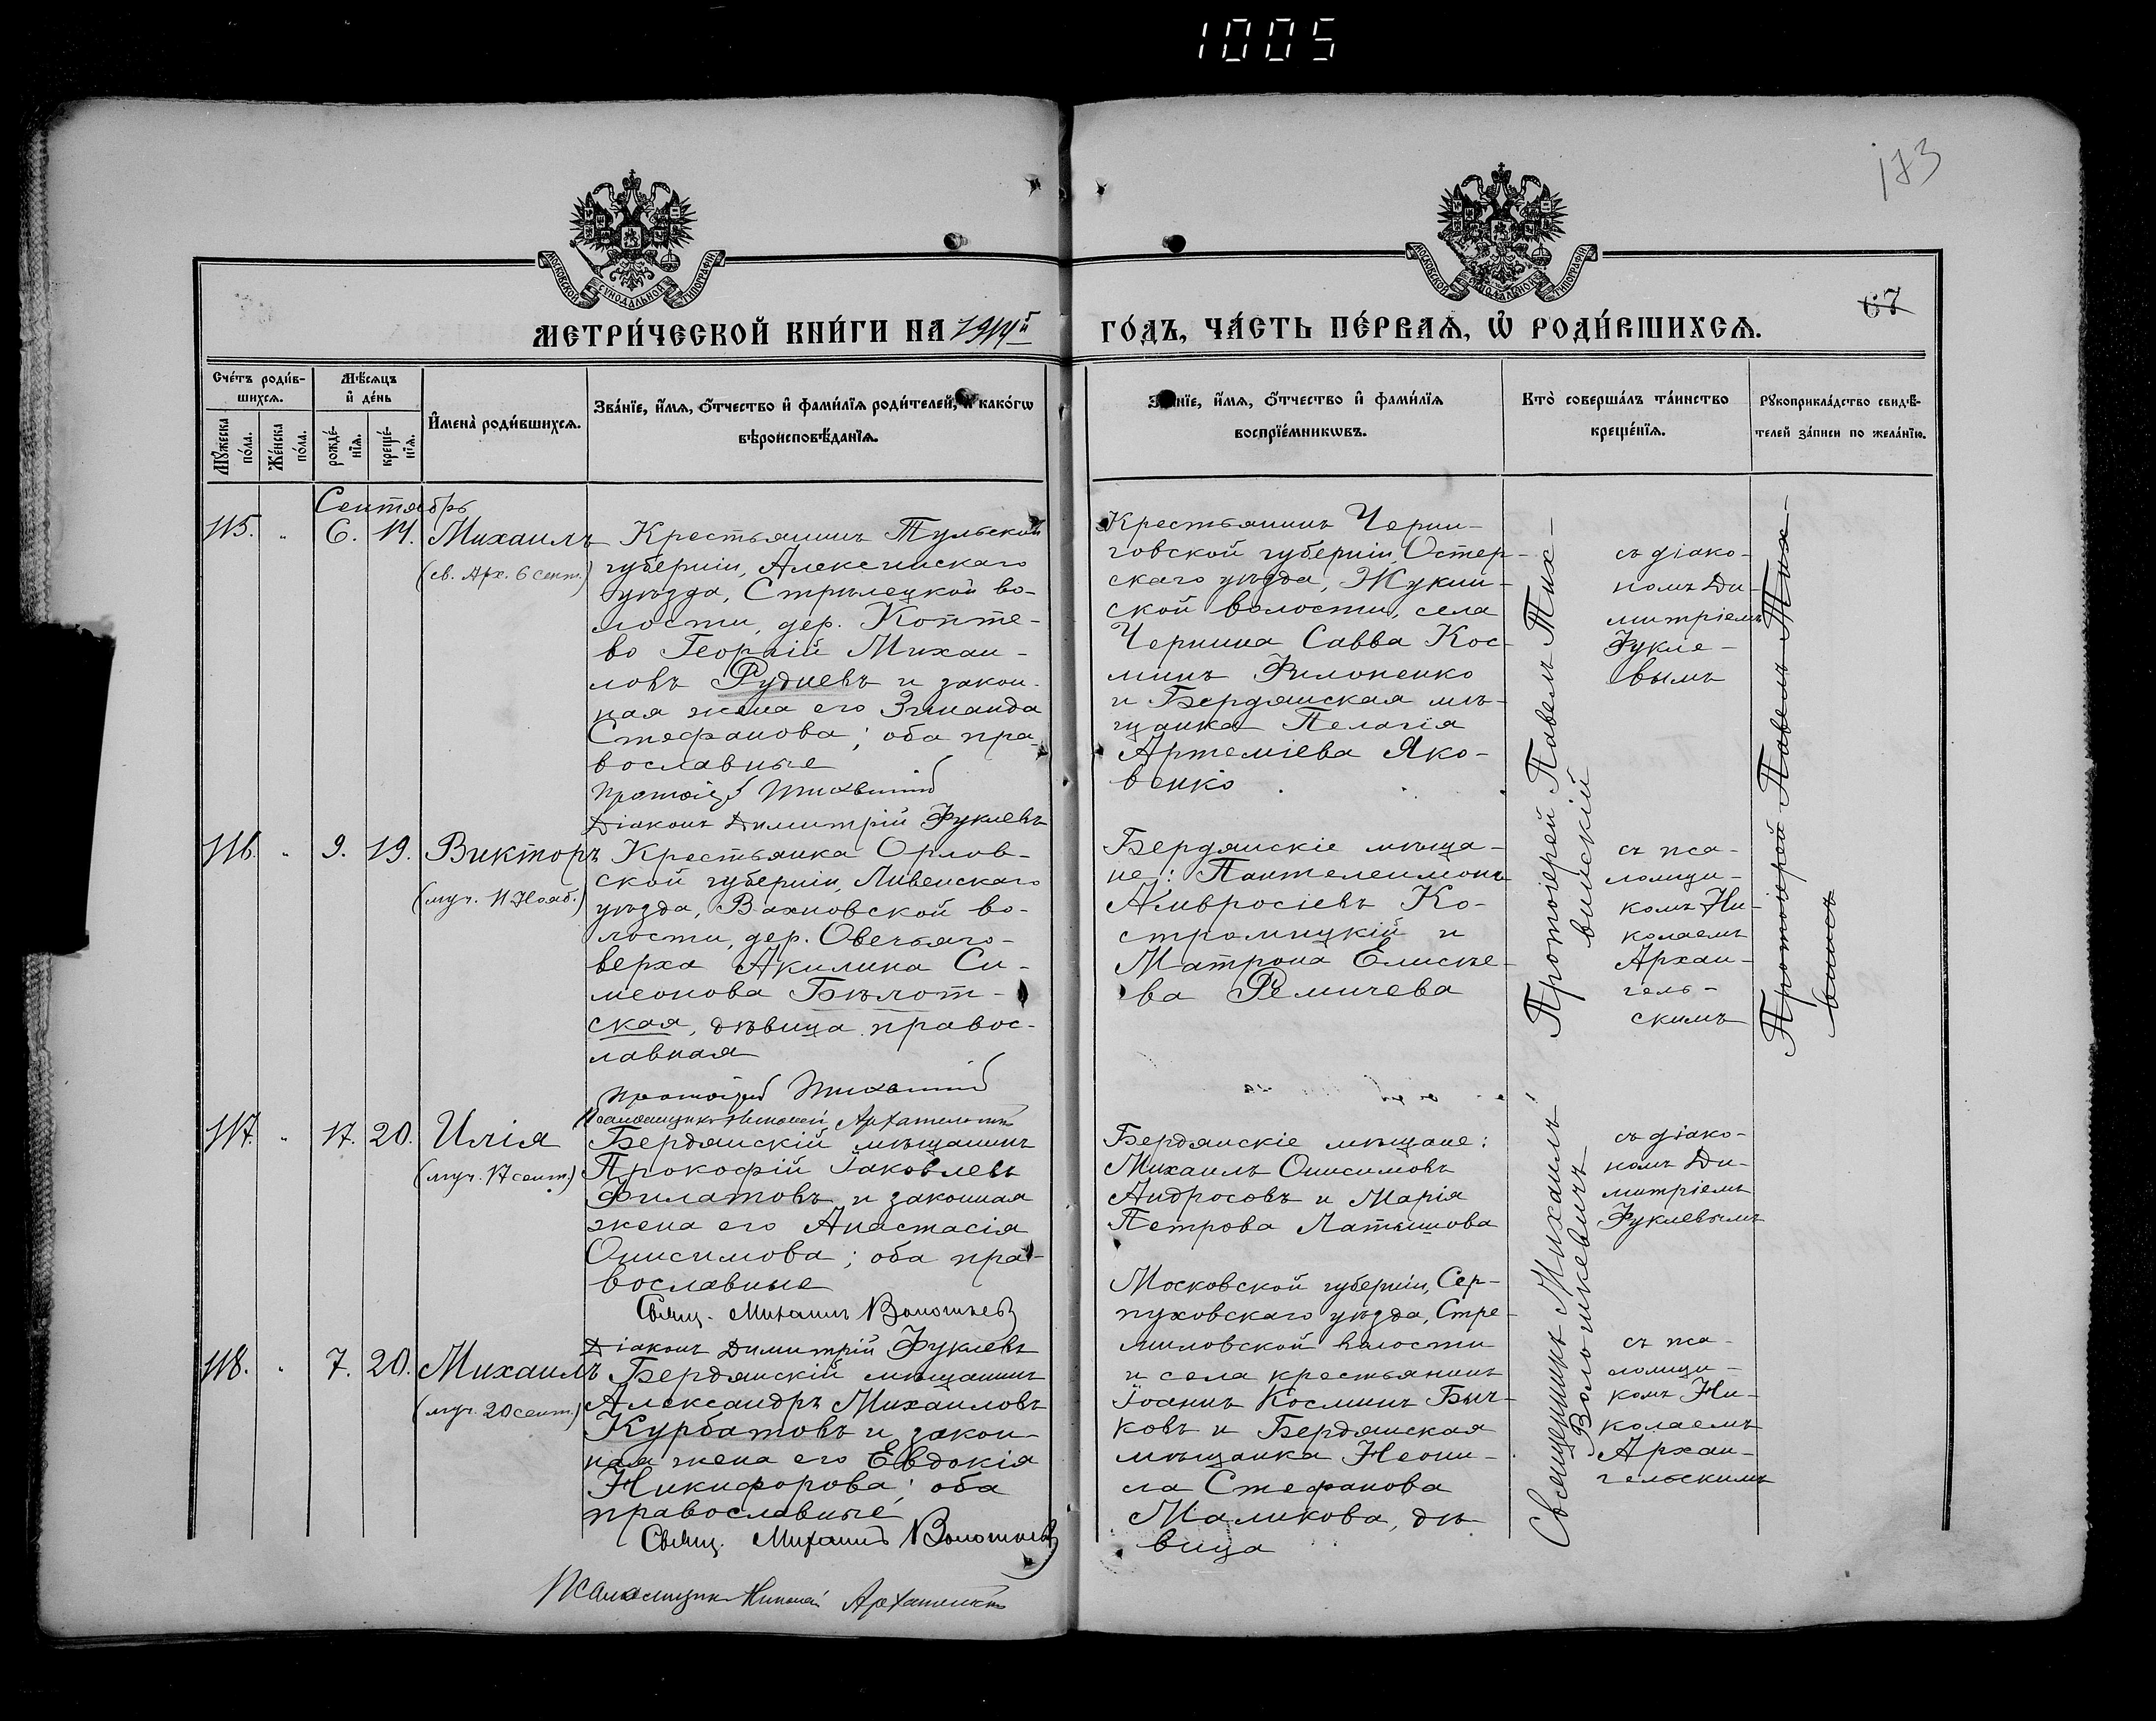 1005
173
67
МОСКОВСКОЙ СУНОДАЛЬНОЙ ТИПОГРАФІИ
МОСКОВСКОЙ СУНОДАЛЬНОЙ ТИПОГРАФІИ
МЕТРИ́ЧЕСКОЙ КНИ́ГИ НА 1914й
ГО́ДЪ, ЧА́СТЬ ПЕ́РВАѦ, Ѡ РОДИ́ВШИХСѦ.
Сче́тъ роди́в-
шихсѧ.
Мужеска по́ла.
Же́нска по́ла.
Мѣ́сѧцъ
и де́нь
рожде́-
нїѧ.
креще́-
нїѧ.
Имена̀ роди́вшихсѧ.
Зва́нїе, и́мѧ, о́тчество и фами́лїѧ роди́телей, и како́гѡ
вѣроисповѣ́данїѧ.
Зва́нїе, и́мѧ, о́тчество и фами́лїѧ
воспрїе́мникѡвъ.
Кто̀ соверша́лъ та́инство
креще́нїѧ.
Рукоприкла́дство свидѣ́-
телей за́писи по жела́нїю.
Сентябрь
115. " 6. 14. Михаилъ
(св. Арх. 6 сент.)
Крестьянинъ Тульской
губерніи, Алексинскаго
уѣзда, Стрѣлецкой во-
лости, дер. Коптe-
во Георгій Михаи-
ловъ Рудневъ и закон-
ная жена его Зинаида
Стефанова; оба пра-
вославные
Діаконъ Димитрій Фуклевъ
Крестьянинъ Черни-
говской губерніи, Остер-
скаго уѣзда, Жукин-
ской волости, села
Чернина Савва Кос-
минъ Филоненко
и Бердянская мѣ-
щанка Пелагія
Артеміева Яко-
венко
Протоіерей Павелъ Тих-
винскій
съ діако-
номъ Ди-
митріемъ
Фукле-
вымъ
Протоіерей Павелъ Тих-
116. " 9. 19. Викторъ
(муч. 11 Нояб.)
Крестьянка Орлов-
ской губерніи, Ливенскаго
уѣзда, Вахновской во-
лости, дер. Овечьяго-
верха Акилина Си-
меонова Бѣлот-
ская, дѣвица правос-
лавная
Псаломщикъ Николай Архангельскій
Бердянскіе мѣща-
не: Пантелеимонъ
Амвросіевъ Ко-
стромицкій и
Матрона Елисѣе-
ва Ремичева
съ пса-
ломщи-
комъ Ни-
колаемъ
Архан-
гель-
скимъ
117. " 17. 20. Илія
(муч. 17 сент.)
Бердянскій мѣщанинъ
Прокофій Іаковлевъ
Филатовъ и законная
жена его Анастасія
Онисимова; оба пра-
вославные
Свящ. Михаилъ
Діаконъ Димитрій Фуклевъ
Бердянскіе мѣщане:
Михаилъ Онисимовъ
Андросовъ и Марія
Петрова Латышова
Священникъ Михаилъ
Волошкевичъ
съ діако-
номъ Ди-
митріемъ
Фуклевымъ
118. " 7. 20. Михаилъ
(муч. 20 сент.)
Бердянскій мѣщанинъ
Александръ Михаиловъ
Курбатовъ и закон-
ная жена его Евдокія
Никифорова; оба
православные
Свящ. Михаилъ
Псаломщикъ Николай Архангельскій
Московской губерніи, Сер-
пуховскаго уѣзда, Стре-
миловской волости
и села крестьянинъ
Іоаннъ Косминъ Быч-
ковъ и Бердянская
мѣщанка Неони-
ла Стефанова
Маликова, дѣ-
вица
съ пса-
ломщи-
комъ Ни-
колаемъ
Архан-
гельскимъ